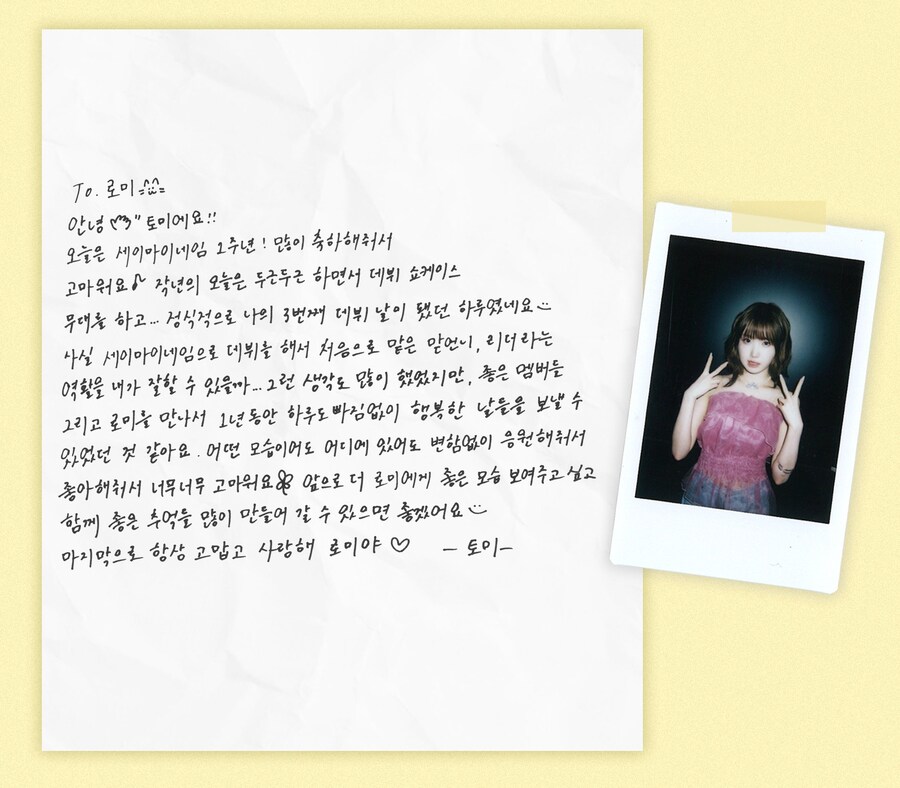 To. 로미
안녕 "토미에요!!
오늘은 세이마이네임 1주년! 많이 축하해줘서
고마워요♪ 작년의 오늘은 두근두근 하면서 데뷔 쇼케이스
무대를 하고... 정식적으로 나의 3번째 데뷔 날이 됐던 하루였네요
사실 세이마이네임으로 데뷔를 해서 처음으로 맡은 맏언니, 리더라는
역활을 내가 잘할 수 있을까... 그런 생각도 많이 했었지만, 좋은 멤버들
그리고 로미을 만나서 1년동안 하루도 빠짐없이 행복한 날들을 보낼 수
있었던 것 같아요. 어떤 모습이어도 어디에 있어도 변함없이 응원해줘서
좋아해줘서 너무너무 고마워요 앞으로 더 로미에게 좋은 모습 보여주고 싶고
함께 좋은 추억을 많이 만들어 갈 수 있으면 좋겠어요
마지막으로 항상 고맙고 사랑해 로미야 ♡ -토미-